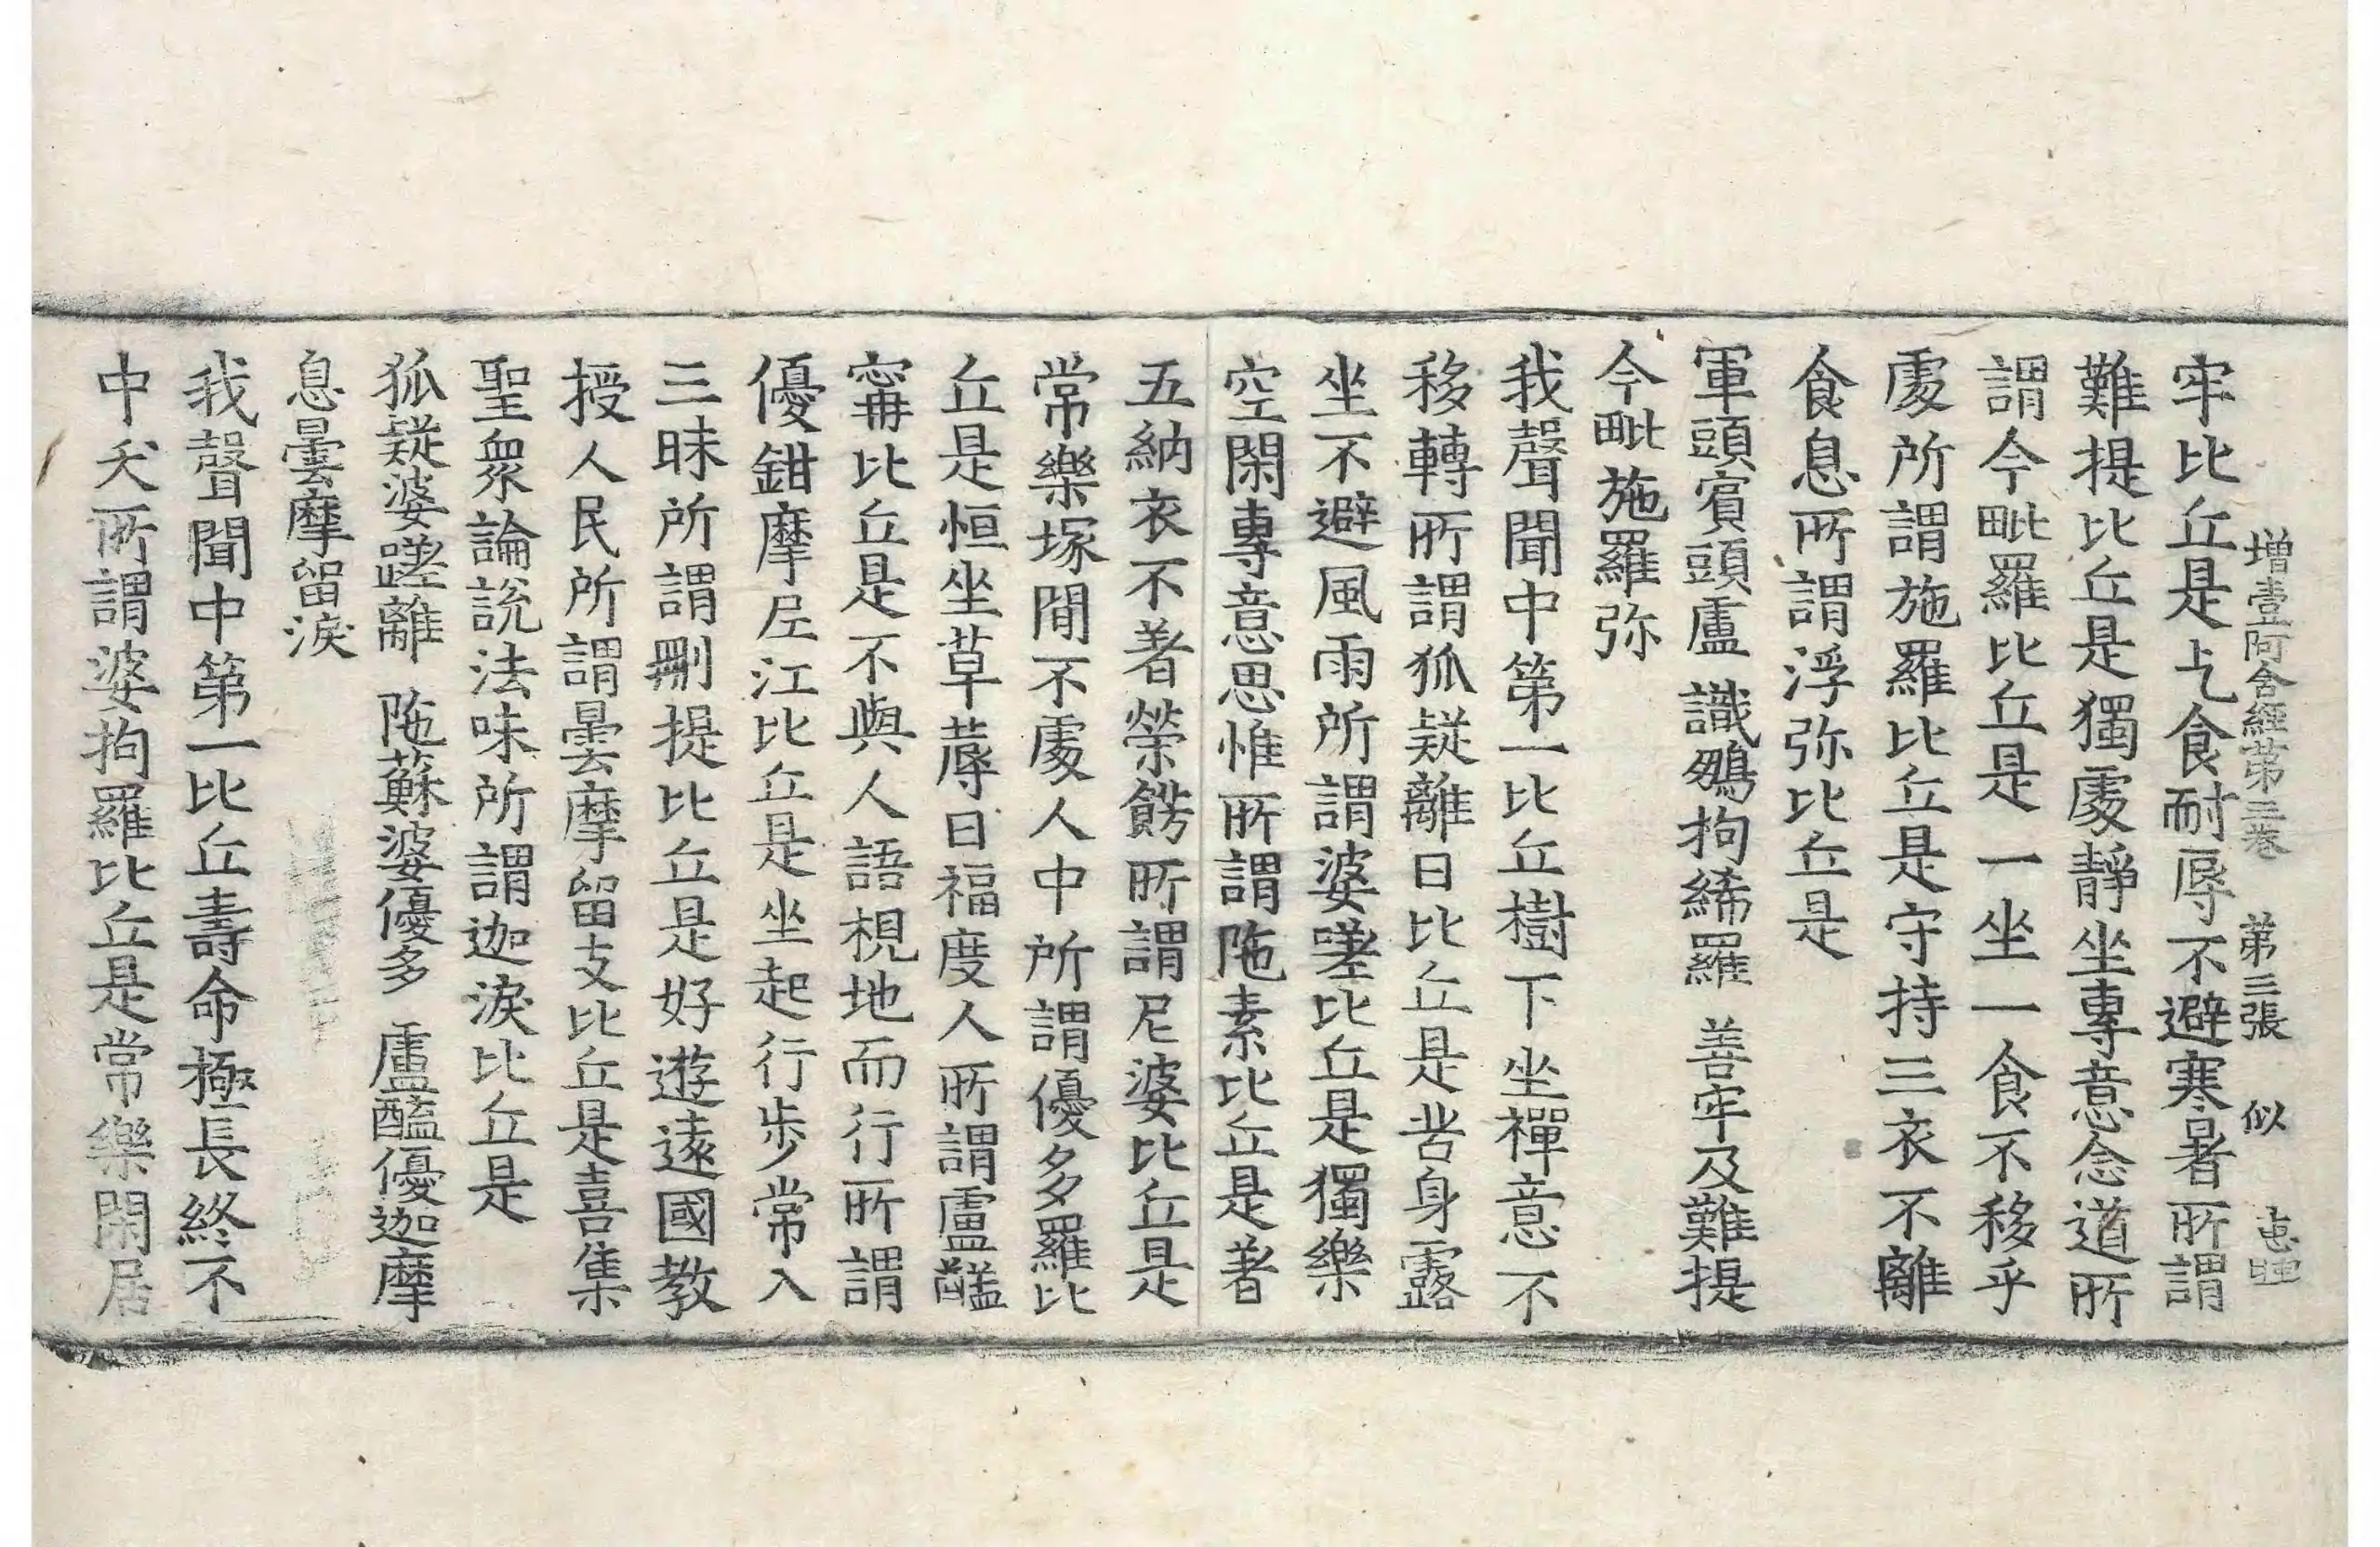 增壹阿含經第三卷 第三張 似
牢比丘是乞食耐辱不避寒暑所謂
難提比丘是獨處靜坐專意念道所
謂今毗羅比丘是一坐一食不移乎
處所謂施羅比丘是守持三衣不離
食息所謂浮弥比丘是
軍頭賓頭盧 識鵶拘絺羅 善牢及難提
今毗施羅弥
我聲聞中第一比丘樹下坐禪意不
移轉所謂狐疑離曰比丘是苦身露
坐不避風雨所謂婆蹉比丘是獨樂
空閑專意思惟所謂陁素比丘是著
五納衣不著榮餝所謂尼婆比丘是
常樂塚間不處人中所謂優多羅比
丘是恒坐草蓐日福度人所謂盧醯
寗比丘是不與人語視地而行所謂
優鉗摩尼江比丘是坐起行步常入
三昧所謂刪提比丘是好遊遠國教
授人民所謂曇摩留支比丘是喜集
聖衆論說法味所謂迦淚比丘是
狐疑婆蹉離 陁蘇婆優多 盧醯優迦摩
息曇摩留淚
我聲聞中第一比丘壽命極長終不
中夭所謂婆拘羅比丘是常樂閑居